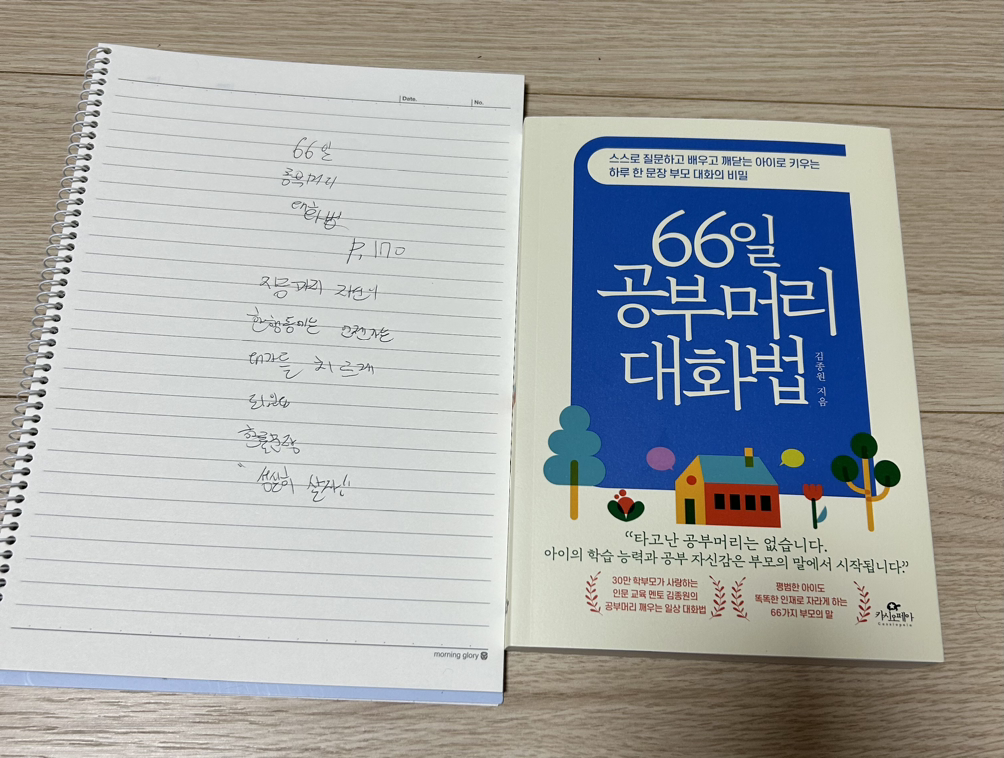 Date.
No.
66일
공부머리
대화법
P, 170
지름
대가를 치르게
한줄문장
"성실히 살자"
morning glory
스스로 질문하고 배우고 깨닫는 아이로 키우는
하루 한 문장 부모 대화의 비밀
66일
공부머리
대화법
김종원 지음
“타고난 공부머리는 없습니다.
아이의 학습 능력과 공부 자신감은 부모의 말에서 시작됩니다.”
30만 학부모가 사랑하는
인문 교육 멘토 김종원의
공부머리 깨우는 일상 대화법
평범한 아이도
똑똑한 인재로 자라게 하는
66가지 부모의 말
카시오페아
Cassiopeia